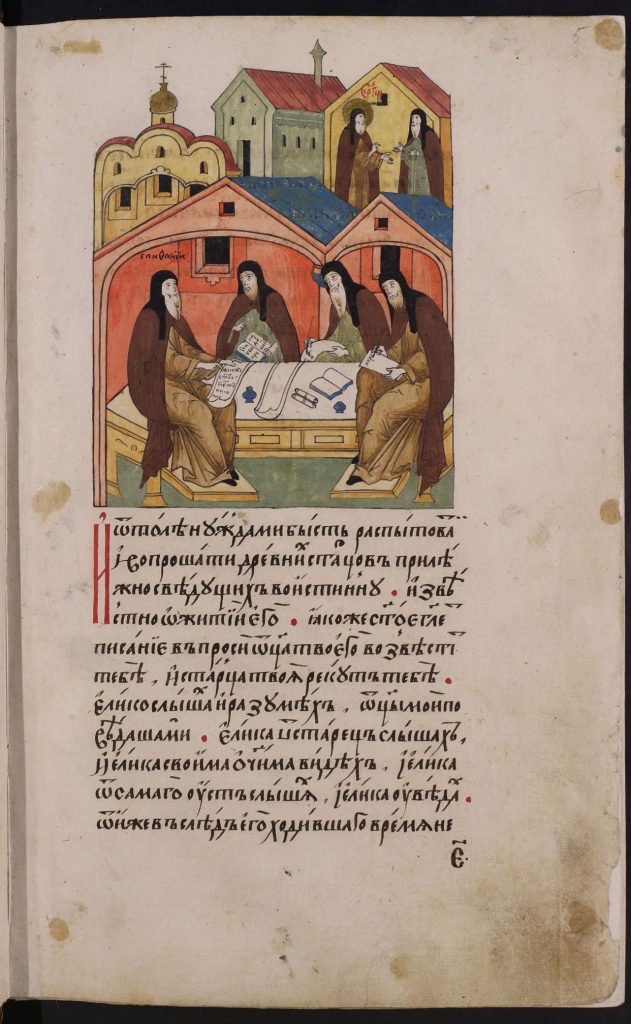 СЕРГІИ
епифаніи
И ѿто́лѣ ну́жда ми бы́сть распы́това́ти
и҆ вопроша́ти дре́вних ста́рцовъ прилѣ́
жно свѣ́дущихъ вои́стинну . и҆звѣ́
стно ѡ҆ жи́тїи е҆го̀ . ꙗ҆коже ст҃о́е гл҃е
писа́нїе въпросѝ ѿц҃а̀ твоего̀ возвѣсти́т
тебѣ̀ , и҆ ста́рца твоѧ̀ реку́тъ тебѣ̀ .
е҆лико слы́шах и҆ разумѣ́хъ , ѿц҃ы̀ мои по
вѣ́даша ми . е҆лика ѿ ста́рецъ слы́шахъ ,
и҆ е҆лика свои́ма ѻ҆чи́ма ви́дѣхъ , и҆ е҆лика
ѿ самаго̀ оу҆́стъ слы́шах , и҆ е҆лика оу҆вѣ́дах .
ѿ и҆́же въслѣ́дъ е҆го̀ ходи́вшаго вре́мѧ не
е҃